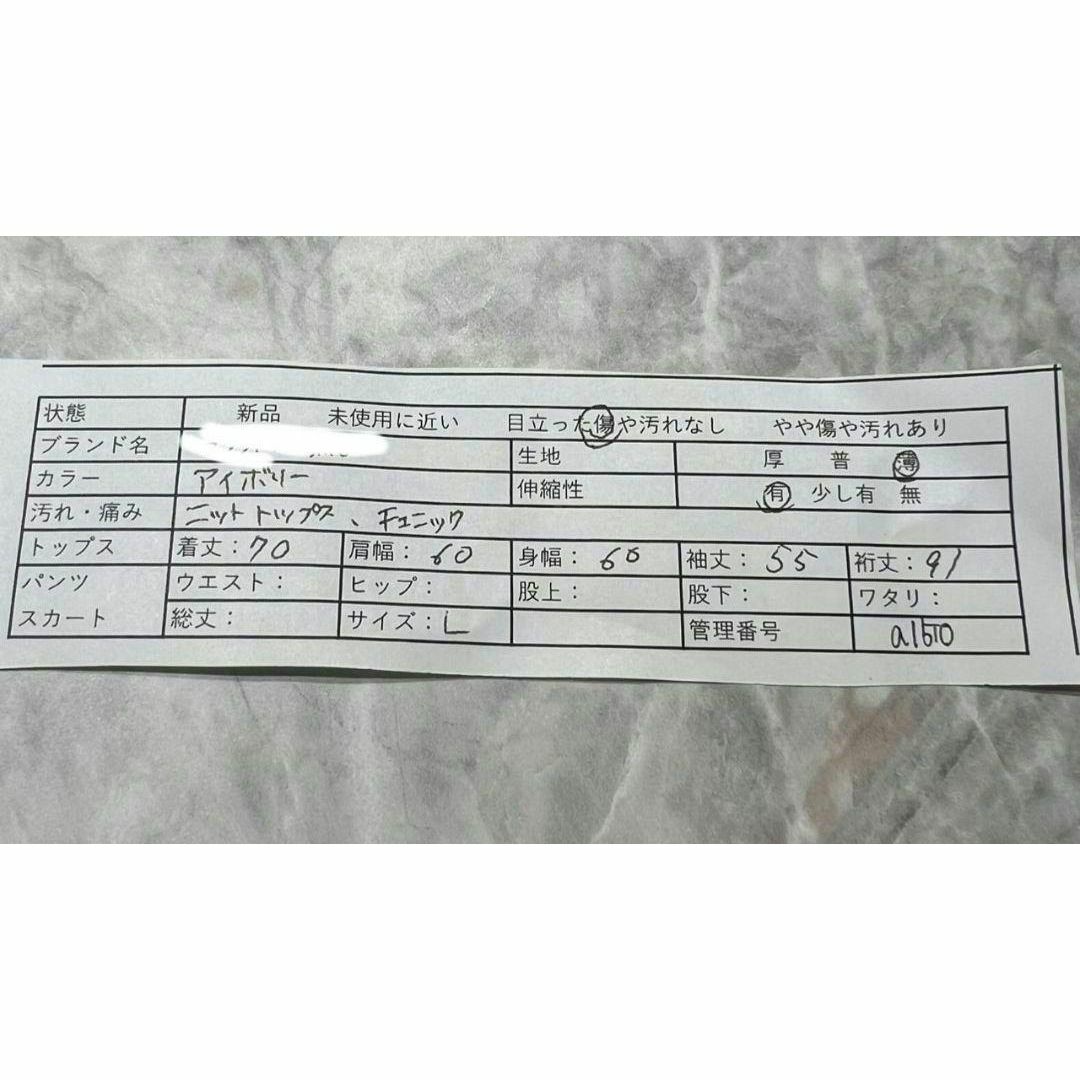 状態 新品 未使用に近い 目立った傷や汚れなし やや傷や汚れあり
ブランド名 生地 厚 普 薄
カラー アイボリー 伸縮性 有 少し有 無
汚れ・痛み ニットトップス、チュニック
トップス 着丈:70 肩幅:60 身幅:60 袖丈:55 裄丈:91
パンツ ウエスト: ヒップ: 股上: 股下: ワタリ:
スカート 総丈: サイズ:L 管理番号